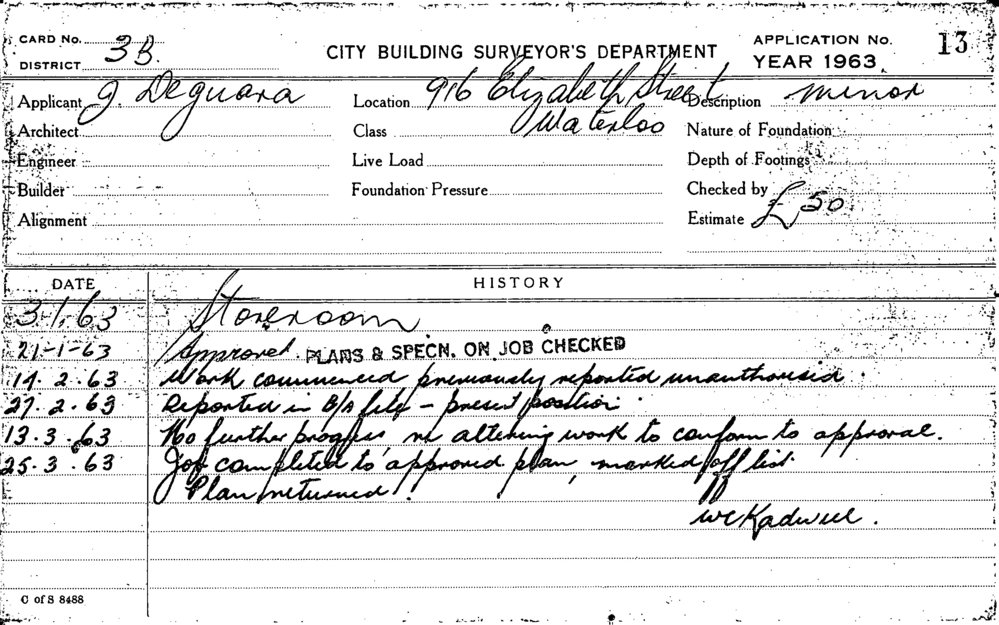 CARD No. 3B.
DISTRICT
CITY BUILDING SURVEYOR'S DEPARTMENT
APPLICATION No. 13
YEAR 1963.
Applicant J. Deguara
Location 916 Elizabeth Street
Waterloo
Description minor
Architect
Class
Nature of Foundation
Engineer
Live Load
Depth of Footings
Builder
Foundation Pressure
Checked by
Alignment
Estimate £50
DATE HISTORY
3.1.63 Storeroom
21-1-63 Approved. PLANS & SPECN. ON JOB CHECKED
14.2.63 Work commenced previously reported unauthorised.
27.2.63 Reported in B/A file - present position.
13.3.63 No further progress re altering work to conform to approval.
25.3.63 Job completed to approved plan, marked off list.
Plan returned.
WCKadwell.
C of S 8488